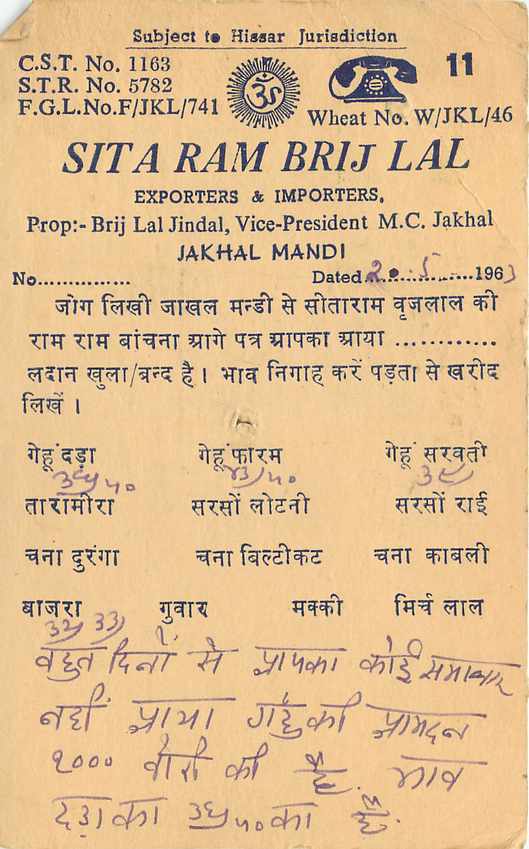 Subject to Hissar Jurisdiction
C.S.T. No. 1163
S.T.R. No. 5782
F.G.L.No.F/JKL/741
ॐ
11
Wheat No. W/JKL/46
SITA RAM BRIJ LAL
EXPORTERS & IMPORTERS,
Prop:- Brij Lal Jindal, Vice-President M.C. Jakhal
JAKHAL MANDI
No............... Dated 20.5.......1963
जोग लिखी जाखल मन्डी से सीताराम वृजलाल की
राम राम बांचना आगे पत्र आपका आया ............
लदान खुला/बन्द है। भाव निगाह करें पड़ता से खरीद
लिखें ।
गेहूं दड़ा गेहूं फारम गेहूं सरवती
तारामीरा सरसों लोटनी सरसों राई
चना दुरंगा चना बिल्टीकट चना काबली
बाजरा गुवार मक्की मिर्च लाल
बहुत दिनों से आपका कोई समाचार
नहीं आया गेहुं की आमदन
१००० बोरी की है. भाव
दड़ा का का है.